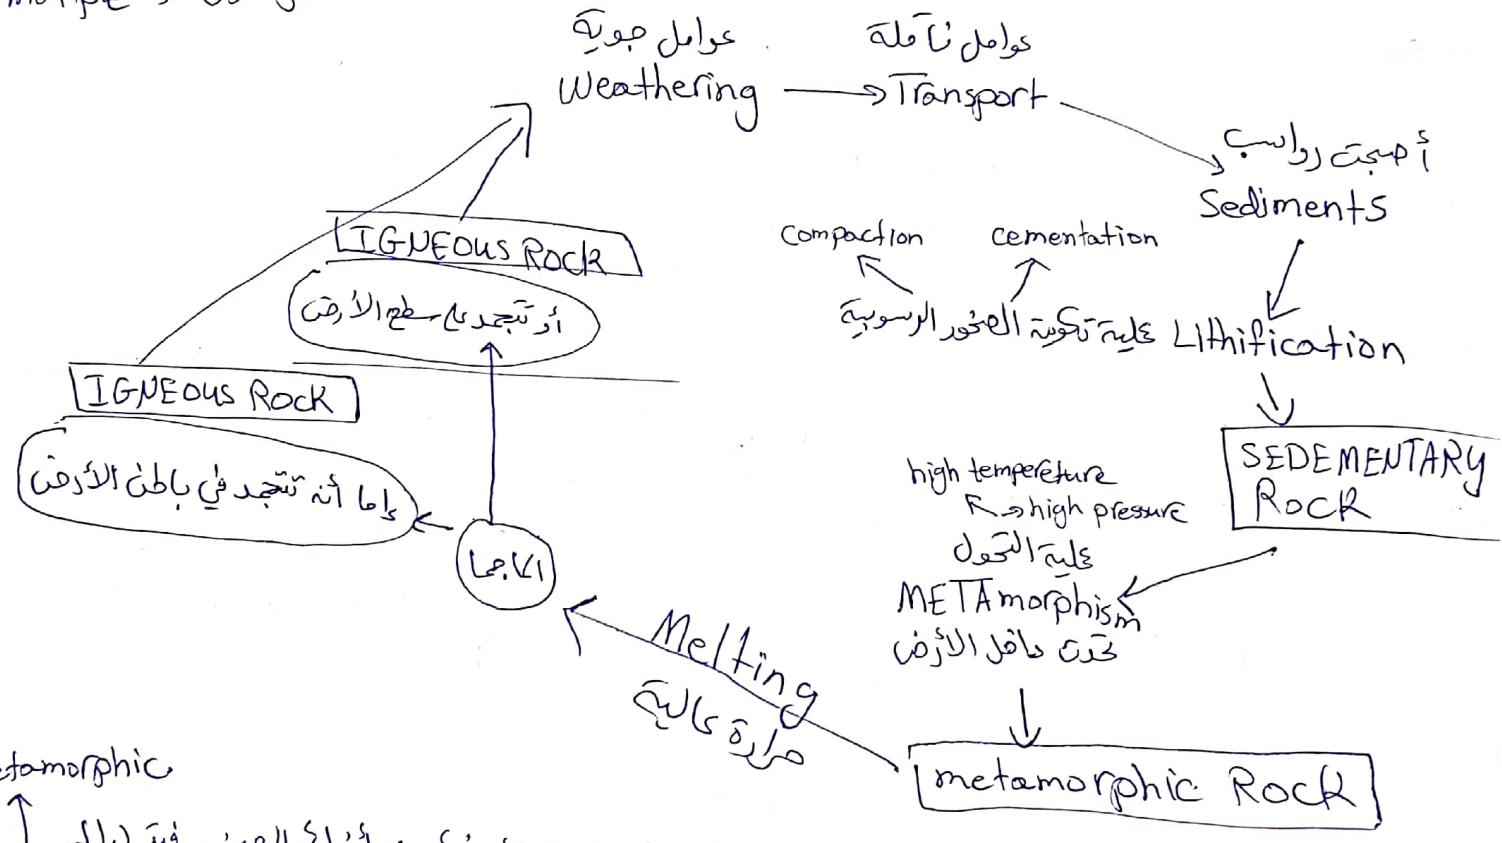 عوامل جوية
Weathering
عوامل ناقلة
Transport
أصبحت رواسب
Sediments
compaction
cementation
عملية تكوين الصخور الرسوبية Lithification
SEDEMENTARY
Rock
high tempereture
high pressure
عملية التحول
METAmorphism
تحدث داخل الأرض
metamorphic Rock
Melting
حرارة عالية
الماجما
IGNEOUS Rock
أو تتجمد على سطح الأرض
IGNEOUS Rock
إما أنه تتجمد في باطن الأرض
tamorphic